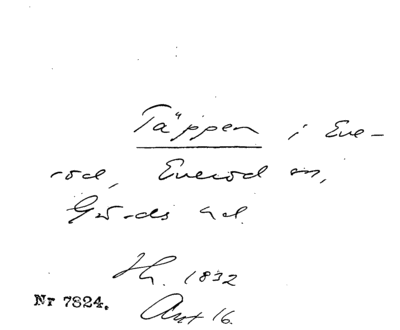 Täppen i Eve-
röd, Everöd sn,
Gärds hd.
Hy. 1832
Nr 7824.
Akt 16.